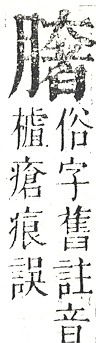 俗字舊註音
樝瘡痕誤